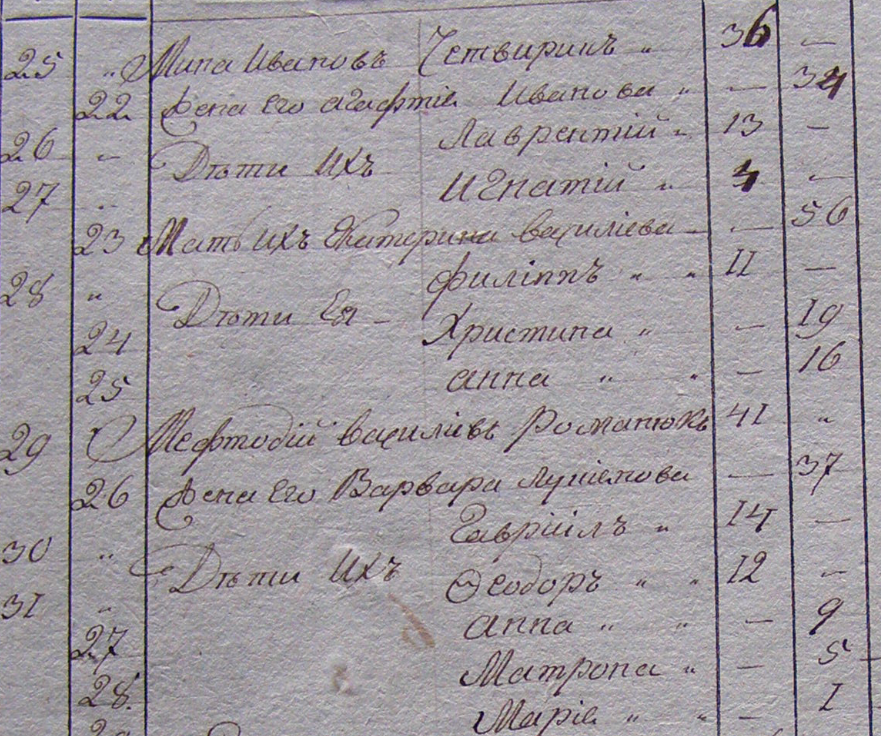 25 „ Мина Ивановъ Четвиринъ „ 36 —
22 Жена его Агафтія Иванова „ — 34
26 „ Дѣти ихъ Лаврентій „ 13 —
27 „ Игнатій „ 4 „
23 Мать ихъ Екатерина Василіева — — 56
28 „ Дѣти Ея — Филіппъ „ „ 11 —
24 Христина „ — 19
25 Анна „ „ — 16
29 Мефтодій Василіевъ Романюкъ 41 „
26 Жена его Варвара — 37
30 „ Дѣти ихъ Гавріилъ „ 14 —
31 „ Ѳеодоръ „ „ 12 —
27 Анна „ „ — 9
28. Матрона „ — 5 —
Марія „ „ — 1